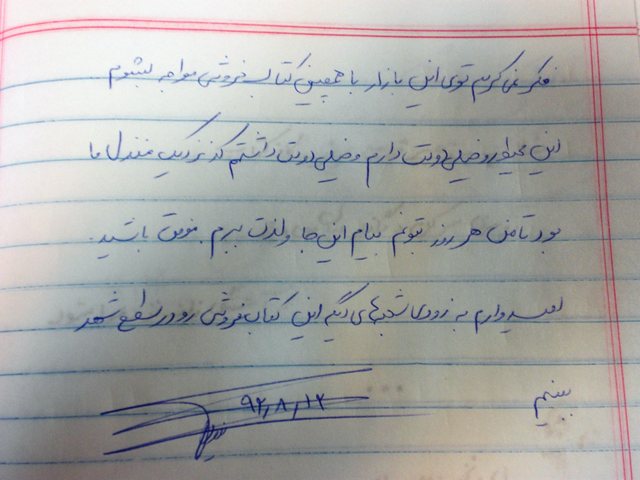 فکر نمی کردم توی این بازار با همچین کتابفروشی مواجه بشوم
این محیط رو خیلی دوست دارم و خیلی دوست داشتم که نزدیک منزل ما
بود تا من هر روز بتونم بیام این جا و لذت ببرم. موفق باشید.
امیدوارم به زودی شعبه های دیگه این کتاب فروشی رو در سطح شهر
ببینم
۹۲،۸،۱۲